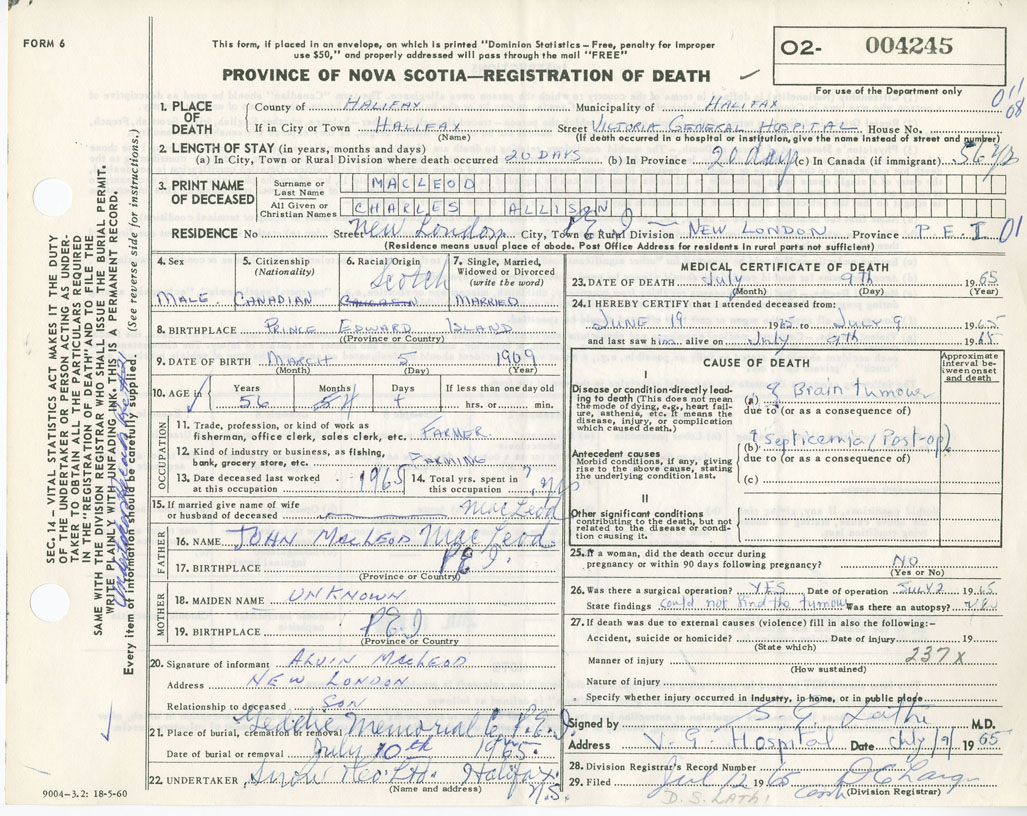 FORM 6
This form, if placed in an envelope, on which is printed "Dominion Statistics – Free, penalty for improper
use $50," and properly addressed will pass through the mail "FREE"
PROVINCE OF NOVA SCOTIA—REGISTRATION OF DEATH
02- 004245
For use of the Department only
SEC. 14 – VITAL STATISTICS ACT MAKES IT THE DUTY
OF THE UNDERTAKER OR PERSON ACTING AS UNDER-
TAKER TO OBTAIN ALL THE PARTICULARS REQUIRED
IN THE "REGISTRATION OF DEATH" AND TO FILE THE
SAME WITH THE DIVISION REGISTRAR WHO SHALL ISSUE THE BURIAL PERMIT.
WRITE PLAINLY WITH UNFADING INK. THIS IS A PERMANENT RECORD.
Every item of information should be carefully supplied. (See reverse side for instructions.)
1. PLACE OF DEATH
County of HALIFAX Municipality of HALIFAX
If in City or Town HALIFAX (Name) Street VICTORIA GENERAL HOSPITAL House No.
(If death occurred in a hospital or institution, give the name instead of street and number)
2. LENGTH OF STAY (in years, months and days)
(a) In City, Town or Rural Division where death occurred 20 DAYS (b) In Province 20 days (c) In Canada (if immigrant) 56 yrs
3. PRINT NAME OF DECEASED
Surname or Last Name MACLEOD
All Given or Christian Names CHARLES ALLISON
RESIDENCE No Street New London P E I City, Town or Rural Division NEW LONDON Province P E I 01
(Residence means usual place of abode. Post Office Address for residents in rural parts not sufficient)
4. Sex MALE
5. Citizenship (Nationality) CANADIAN
6. Racial Origin Scotch
7. Single, Married, Widowed or Divorced (write the word) MARRIED
8. BIRTHPLACE PRINCE EDWARD ISLAND
(Province or Country)
9. DATE OF BIRTH MARCH 5 1909
(Month) (Day) (Year)
10. AGE in Years 56 Months 4 Days 4 If less than one day old hrs. or min.
OCCUPATION
11. Trade, profession, or kind of work as
fisherman, office clerk, sales clerk, etc. FARMER
12. Kind of industry or business, as fishing,
bank, grocery store, etc. FARMING
13. Date deceased last worked at this occupation 1965
14. Total yrs. spent in this occupation ? yrs
15. If married give name of wife or husband of deceased MacLeod
FATHER
16. NAME JOHN MACLEOD MacLeod
17. BIRTHPLACE P E I
(Province or Country)
MOTHER
18. MAIDEN NAME UNKNOWN
19. BIRTHPLACE P E I
(Province or Country)
20. Signature of informant ALVIN MACLEOD
Address NEW LONDON
Relationship to deceased SON
21. Place of burial, cremation or removal Geddie Memorial C. P.E.I
Date of burial or removal July 10th 1965
22. UNDERTAKER Halifax N.S.
(Name and address)
9004-3.2: 18-5-60
MEDICAL CERTIFICATE OF DEATH
23. DATE OF DEATH July 9th 1965
(Month) (Day) (Year)
24. I HEREBY CERTIFY that I attended deceased from:
JUNE 19 1965 to JULY 9 1965
and last saw him alive on July 9th 1965
CAUSE OF DEATH
Approximate interval between onset and death
I
Disease or condition-directly leading to death (This does not mean the mode of dying, e.g., heart failure, asthenia, etc. It means the disease, injury, or complication which caused death.)
(a) Brain tumour
due to (or as a consequence of)
Antecedent causes
Morbid conditions, if any, giving rise to the above cause, stating the underlying condition last.
(b) Septicemia (Post-op)
due to (or as a consequence of)
(c)
II
Other significant conditions
contributing to the death, but not related to the disease or condition causing it.
25. If a woman, did the death occur during
pregnancy or within 90 days following pregnancy? NO
(Yes or No)
26. Was there a surgical operation? YES Date of operation JULY 2 1965
State findings could not find the tumour Was there an autopsy? Yes
27. If death was due to external causes (violence) fill in also the following:-
Accident, suicide or homicide? Date of injury 19
(State which)
Manner of injury 237 X
(How sustained)
Nature of injury
Specify whether injury occurred in industry, in home, or in public place
Signed by S. G. Lathi M.D.
Address V. G. Hospital Date July 9 1965
28. Division Registrar's Record Number
29. Filed Jul 12 1965
(Division Registrar)
D. S. LATHI